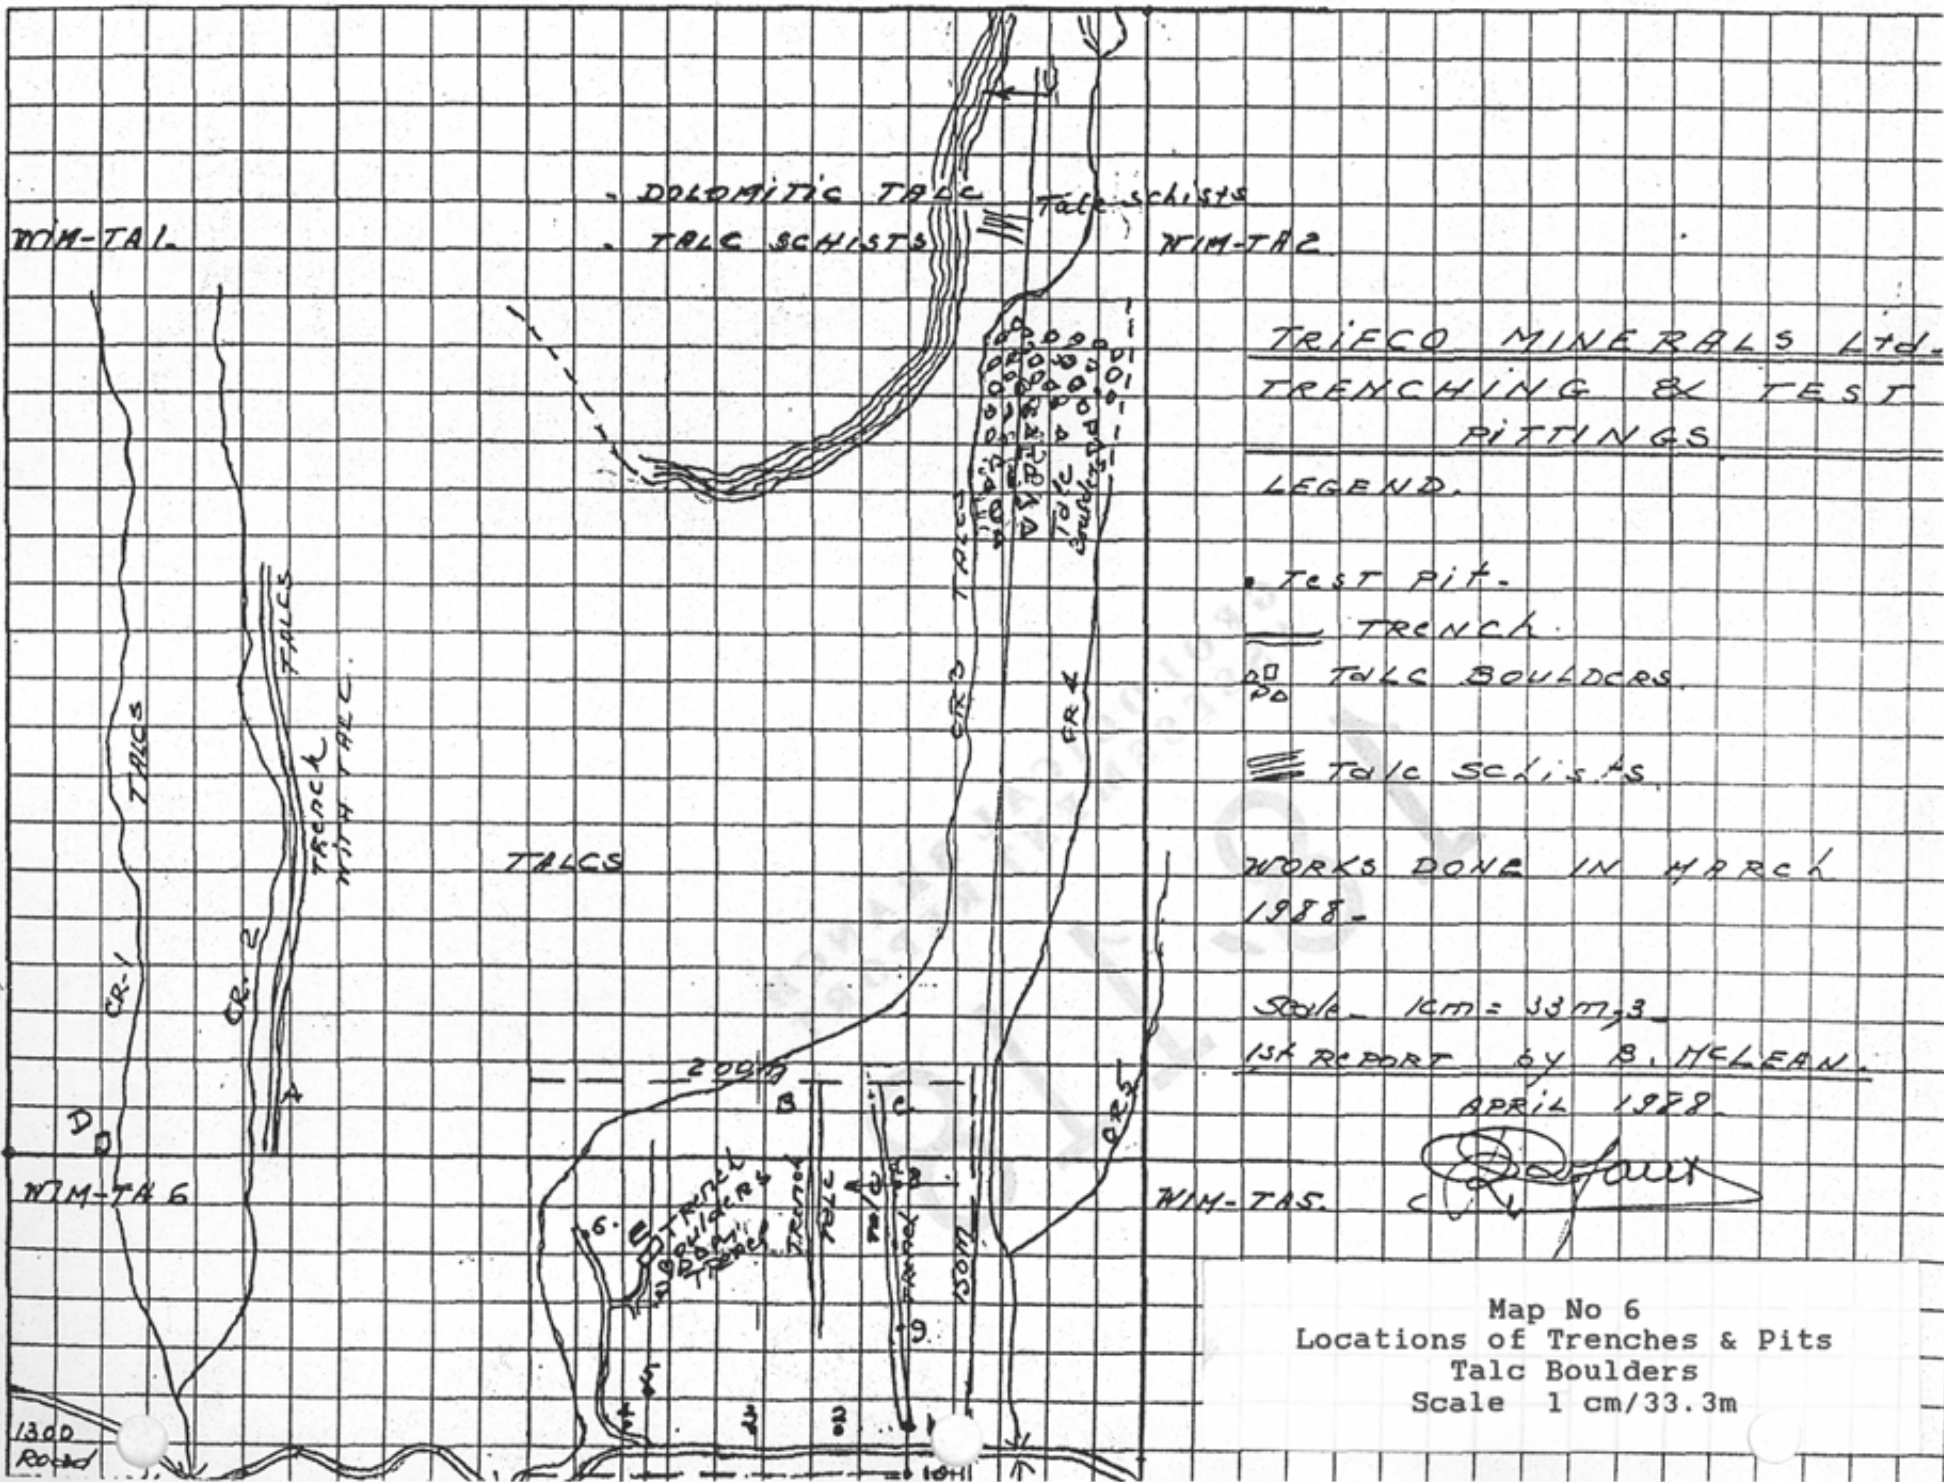 - DOLOMITIC TALC
- TALC SCHISTS
Talc schists
WIM-TA1.
WIM-TA2.
TRIFCO MINERALS Ltd.
TRENCHING & TEST
PITTINGS
LEGEND.
Test Pit.
TRENCh
Talc BOULDERS.
Talc Schists
WORKS DONE IN MARCh
1988-
Scale- 1cm = 33m,3
1st REPORT by B. MCLEAN.
APRIL 1988-
TALCS
TALCS
TRENCh
WITH TALC.
TALCS
CR-1
CR. 2
TALCS
CR3
CR4
CR5
Talc
Boulders
A
D
WIM-TA 6
WIM-TA5.
200m
B
C
TRENCh
BOULDERS
TRENCh
TALC
Talc
TRENCh
150M
E
6.
8
9
5
4
3
2
1
10
1300
Road
Map No 6
Locations of Trenches & Pits
Talc Boulders
Scale 1 cm/33.3m